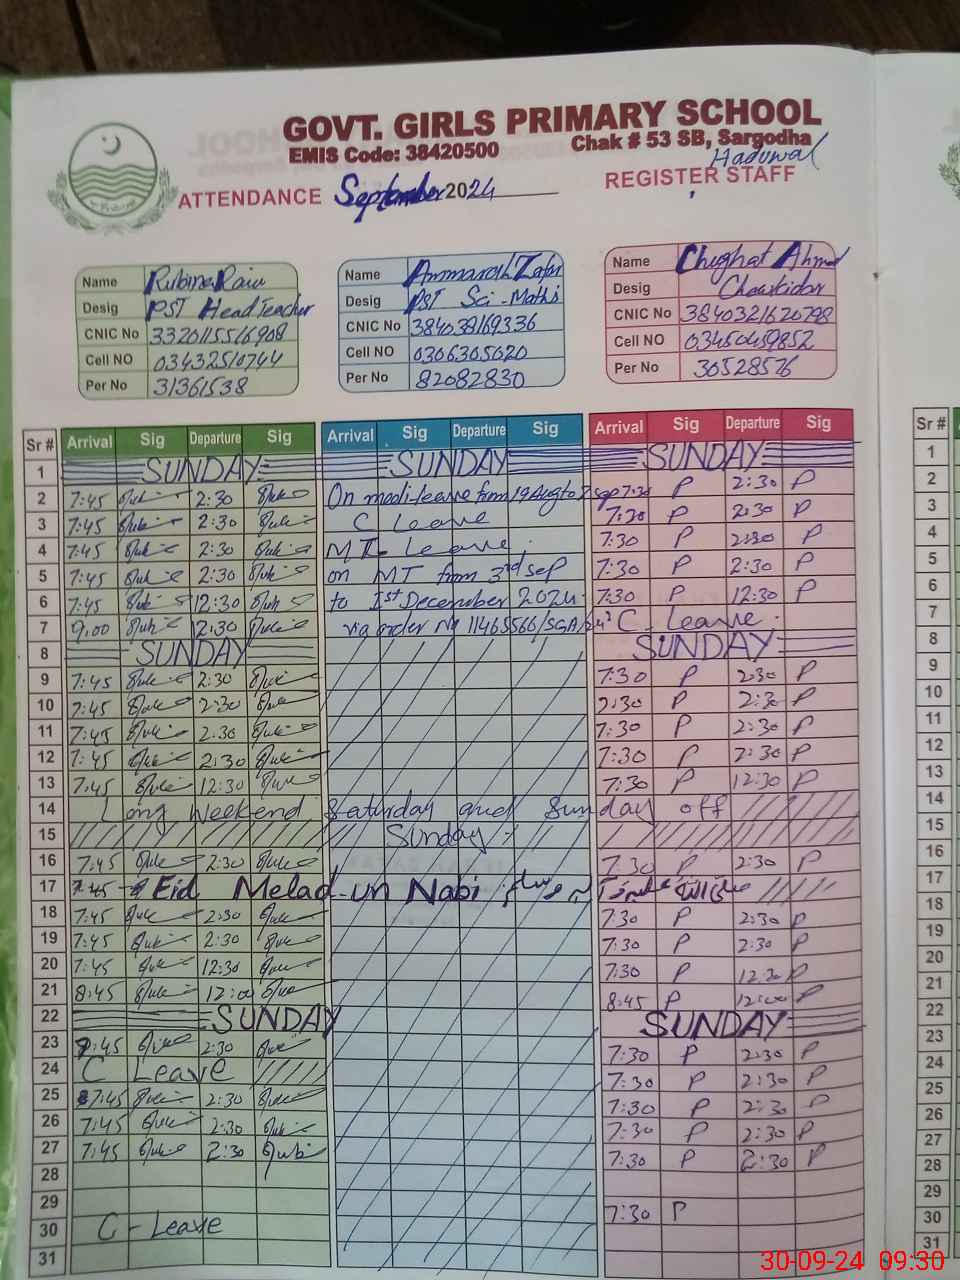 GOVT. GIRLS PRIMARY SCHOOL
EMIS Code: 38420500 Chak # 53 SB, Sargodha
Haduwal
ATTENDANCE September 2024 REGISTER STAFF
Name Rubina
Desig PST Head Teacher
CNIC No 3320115516908
Cell NO 03432510744
Per No 31361538
Name Ammarah Zafar
Desig PST Sci-Maths
CNIC No 384038169336
Cell NO 0306305020
Per No 82082830
Name Ahmad
Desig Chowkidar
CNIC No 3840321620798
Cell NO 03450459852
Per No 30528576
Sr # Arrival Sig Departure Sig Arrival Sig Departure Sig Arrival Sig Departure Sig
1 SUNDAY SUNDAY SUNDAY 1
2 7:45 2:30 On medi-leave from 19 Aug to 2 sep 7:30 P 2:30 P 2
3 7:45 2:30 C Leave 7:30 P 2:30 P 3
4 7:45 2:30 MT Leave 7:30 P 2:30 P 4
5 7:45 2:30 on MT from 3rd sep 7:30 P 2:30 P 5
6 7:45 12:30 to 1st December 2024 7:30 P 12:30 P 6
7 9:00 12:30 via order No 11465566/SGA/24 C-Leave 7
8 SUNDAY SUNDAY 8
9 7:45 2:30 7:30 P 2:30 P 9
10 7:45 2:30 2:30 P 2:30 P 10
11 7:45 2:30 7:30 P 2:30 P 11
12 7:45 2:30 7:30 P 2:30 P 12
13 7:45 12:30 7:30 P 12:30 P 13
14 Long Weekend Saturday and Sunday off 14
15 Sunday 15
16 7:45 2:30 7:30 P 2:30 P 16
17 7:45 Eid Melad-un Nabi 17
18 7:45 2:30 7:30 P 2:30 P 18
19 7:45 2:30 7:30 P 2:30 P 19
20 7:45 12:30 7:30 P 12:30 P 20
21 8:45 12:00 8:45 P 12:00 P 21
22 SUNDAY SUNDAY 22
23 7:45 2:30 7:30 P 2:30 P 23
24 C Leave 7:30 P 2:30 P 24
25 7:45 2:30 7:30 P 2:30 P 25
26 7:45 2:30 7:30 P 2:30 P 26
27 7:45 2:30 7:30 P 2:30 P 27
28 28
29 29
30 C-Leave 7:30 P 30
31 31
30-09-24 09:30